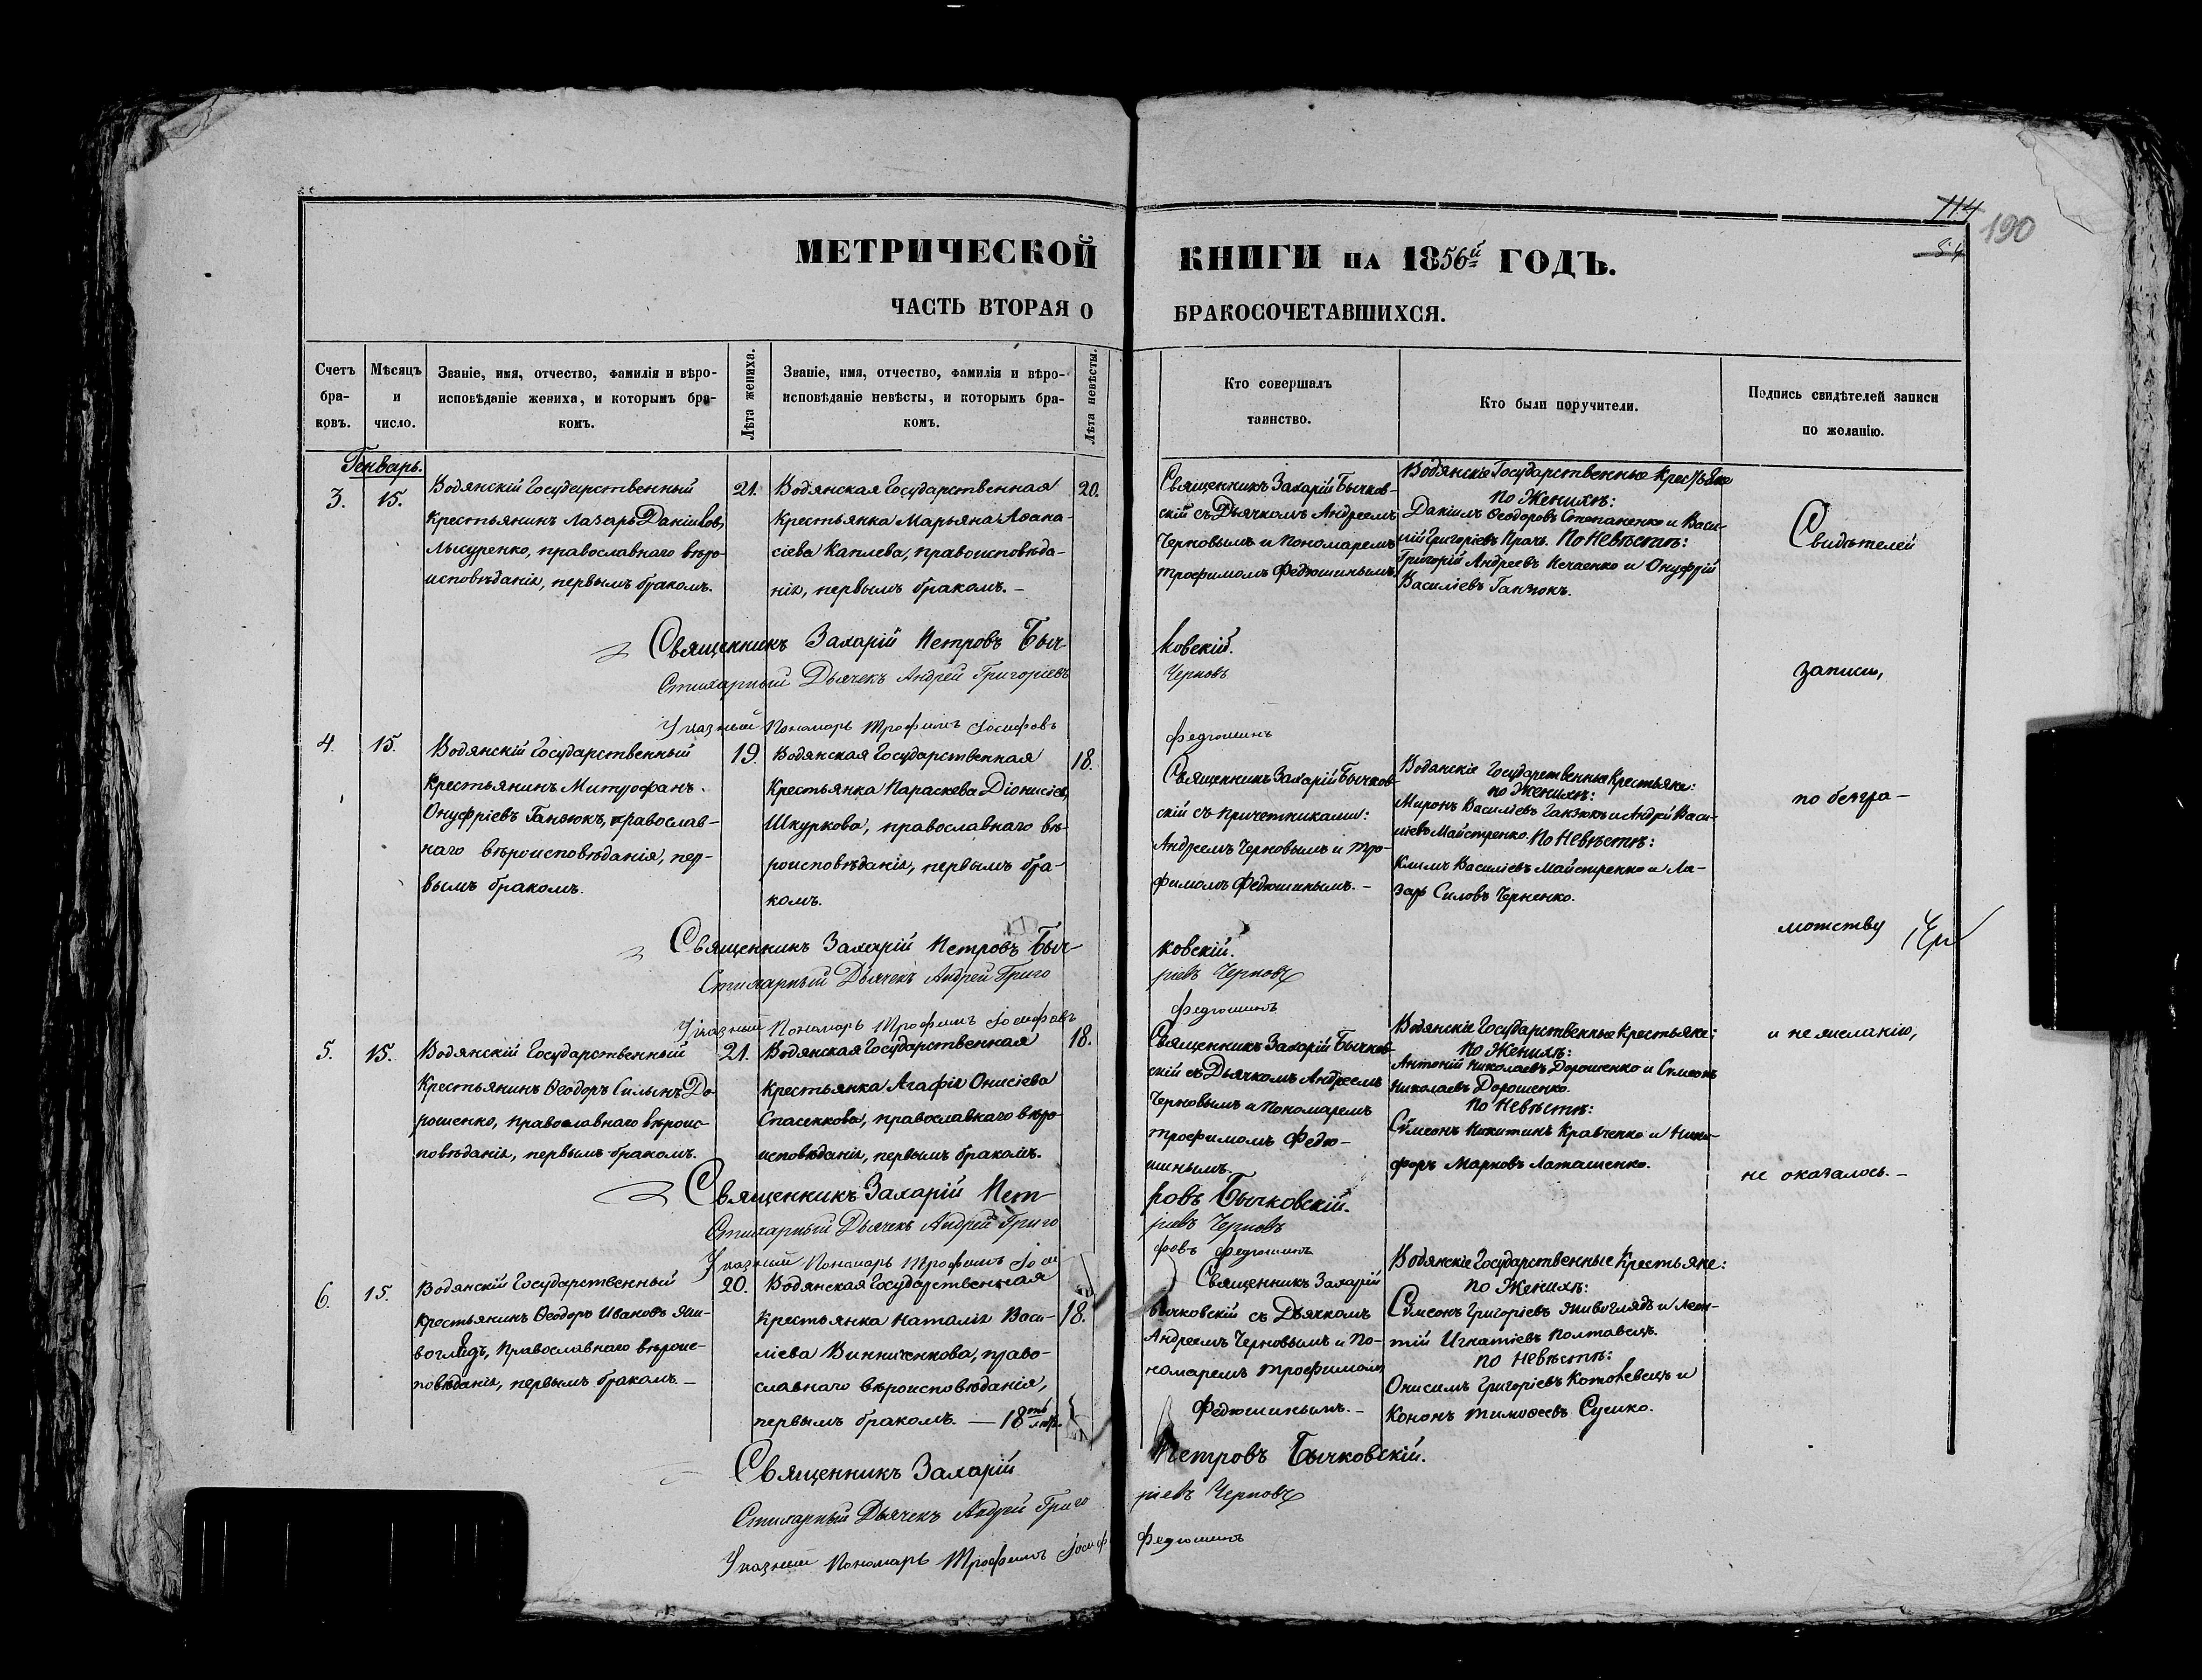 114
190
54
МЕТРИЧЕСКОЙ КНИГИ НА 1856й ГОДЪ.
ЧАСТЬ ВТОРАЯ О БРАКОСОЧЕТАВШИХСЯ.
Счетъ
бра-
ковъ.
Мѣсяцъ
и
число.
Званіе, имя, отчество, фамилія и вѣро-
исповѣданіе жениха, и которымъ бра-
комъ.
Лѣта жениха.
Званіе, имя, отчество, фамилія и вѣро-
исповѣданіе невѣсты, и которымъ бра-
комъ.
Лѣта невѣсты.
Кто совершалъ
таинство.
Кто были поручители.
Подпись свидѣтелей записи
по желанію.
Генварь.
3.
15.
Водянскій Государственный
Крестьянинъ Лазарь Даніиловъ
Лысуренко, православнаго вѣро-
исповѣданія, первымъ бракомъ.
21.
Водянская Государственная
Крестьянка Марьяна Аѳана-
сіева Каплева, правоисповѣда-
нія, первымъ бракомъ. -
20.
Священникъ Захарій Бычков-
скій съ Дьячкомъ Андреемъ
Черновымъ и Пономаремъ
Трофимомъ Федюшинымъ
Водянскіе Государственные Крестьяне
По Женихѣ:
Даніилъ Ѳеодоровъ Степаненко и Васи-
лій Григоріевъ Прачъ. По Невѣстѣ:
Григорій Андреевъ Нечаенко и Онуфрій
Василіевъ Ганзюкъ.
Свидѣтелей
Священникъ Захарій Петровъ Быч-
ковскій.
Стихарный Дьячекъ Андрей Григоріевъ
Черновъ
Указный Пономарь Трофимъ Іосифовъ
Федюшинъ
записи,
4.
15.
Водянскій Государственный
Крестьянинъ Митрофанъ
Онуфріевъ Ганзюкъ, православ-
наго вѣроисповѣданія, пер-
вымъ бракомъ.
19.
Водянская Государственная
Крестьянка Параскева Діонисіев,
Шкуркова, православнаго вѣ-
роисповѣданія, первымъ бра-
комъ.
18.
Священникъ Захарій Бычков-
скій съ причетниками:
Андреемъ Черновымъ и Тро-
фимомъ Федюшинымъ. -
Водянскіе Государственные Крестьяне:
по Женихѣ:
Миронъ Василіевъ Ганзюкъ и Андрей Васи-
ліевъ Майстренко. По Невѣстѣ:
Климъ Василіевъ Майстренко и Ла-
зарь Силовъ Черненко.
по безгра-
мотству
Священникъ Захарій Петровъ Быч-
ковскій.
Стихарный Дьячекъ Андрей Григо
ріевъ Черновъ
Указный Пономарь Трофимъ Іосифовъ
Федюшинъ
5.
15.
Водянскій Государственный
Крестьянинъ Ѳеодоръ Силинъ До-
рошенко, православнаго вѣроис-
повѣданія, первымъ бракомъ.
21.
Водянская Государственная
Крестьянка Агафія Онисіева
Спасенкова, православнаго вѣро-
исповѣданія, первымъ бракомъ.
18.
Священникъ Захарій Бычков-
скій съ Дьячкомъ Андреемъ
Черновымъ и Пономаремъ
Трофимомъ Федю-
шинымъ.
Водянскіе Государственные Крестьяне:
По Женихѣ:
Антоній Николаевъ Дорошенко и Сѵмеонъ
Николаевъ Дорошенко.
По Невѣстѣ:
Сѵмеонъ Никитинъ Кравченко и Ники-
форъ Марковъ Латашенко.
и нежеланію,
не оказалось. -
Священникъ Захарій Пет-
ровъ Бычковскій.
Стихарный Дьячекъ Андрей Григо
ріевъ Черновъ
Указный Пономарь Трофимъ Іоси
фовъ Федюшинъ
6.
15.
Водянскій Государственный
Крестьянинъ Ѳеодоръ Ивановъ Жи-
воглядъ, Православнаго вѣроис-
повѣданія, первымъ бракомъ. -
20.
Водянская Государственная
Крестьянка Наталія Васи-
ліева Винниченкова, право-
славнаго вѣроисповѣданія,
первымъ бракомъ. - 18ть лѣтъ.
18.
Священникъ Захарій
Бычковскій съ Дьячкомъ
Андреемъ Черновымъ и По-
номаремъ Трофимомъ
Федюшинымъ. -
Водянскіе Государственные Крестьяне:
по Женихѣ:
Сѵмеонъ Григоріевъ Живоглядъ и Леон-
тій Игнатіевъ Полтавецъ.
по Невѣстѣ:
Онисимъ Григоріевъ Котовецъ и
Кононъ Тимоѳеевъ Сушко.
Священникъ Захарій
Петровъ Бычковскій.
Стихарный Дьячекъ Андрей Григо
ріевъ Черновъ
Указный Пономарь Трофимъ Іосиф
Федюшинъ